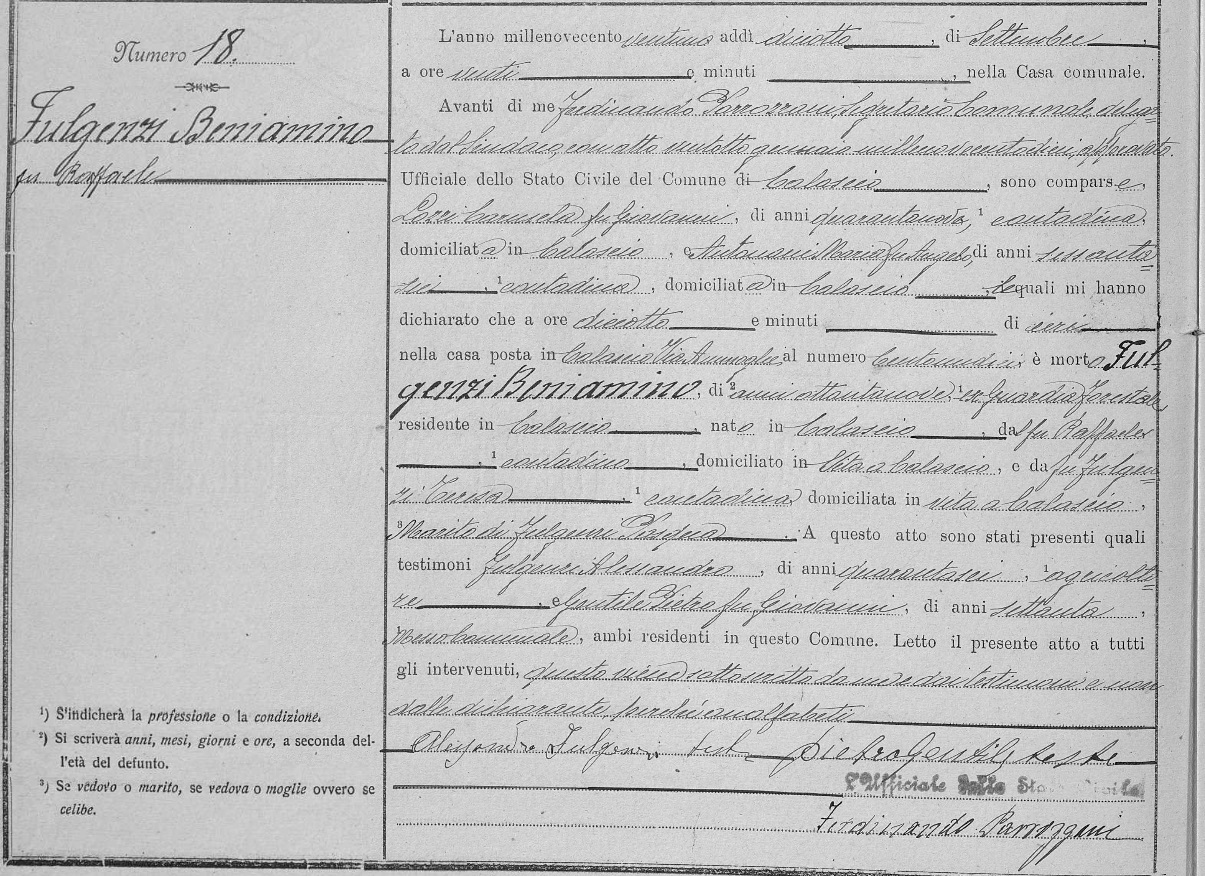 Numero 18.
Fulgenzi Beniamino
fu Raffaele
¹) S'indicherà la professione o la condizione.
²) Si scriverà anni, mesi, giorni e ore, a seconda del-
l'età del defunto.
³) Se vedovo o marito, se vedova o moglie ovvero se
celibe.
L'anno millenovecento ventuno addì diciotto, di Settembre,
a ore venti e minuti , nella Casa comunale.
Avanti di me Ferdinando Parrozzani, Segretario Comunale, delega-
to dal Sindaco, con atto ventotto gennaio millenovecentodieci, approvato.
Ufficiale dello Stato Civile del Comune di Calascio, sono comparse
Carmela fu Giovanni, di anni quarantanove, ¹ contadina
domiciliata in Calascio, e Antonacci Maria fu Angelo, di anni sessanta=
sei, ¹ contadina, domiciliata in Calascio, le quali mi hanno
dichiarato che a ore diciotto e minuti di ieri
nella casa posta in Calascio Via al numero centoundici, è morto Ful-
genzi Beniamino, di ² anni ottantanove, ¹ ex Guardia Forestale
residente in Calascio, nato in Calascio, dal fu Raffaele
, ¹ contadino, domiciliato in vita a Calascio, e da fu Fulgen-
zi Teresa, ¹ contadina, domiciliata in vita a Calascio,
³ Marito di Fulgenzi. A questo atto sono stati presenti quali
testimoni Fulgenzi Alessandro, di anni quarantasei, ¹ agricolto-
re, e Gentile Pietro fu Giovanni, di anni settanta,
¹ Messo Comunale, ambi residenti in questo Comune. Letto il presente atto a tutti
gli intervenuti, questo viene sottoscritto da me e dai testimoni e non
dalle dichiaranti perché analfabeti
Alessandro Fulgenzi test Pietro Gentile teste
L'Ufficiale dello Stato Civile
Ferdinando Parrozzani